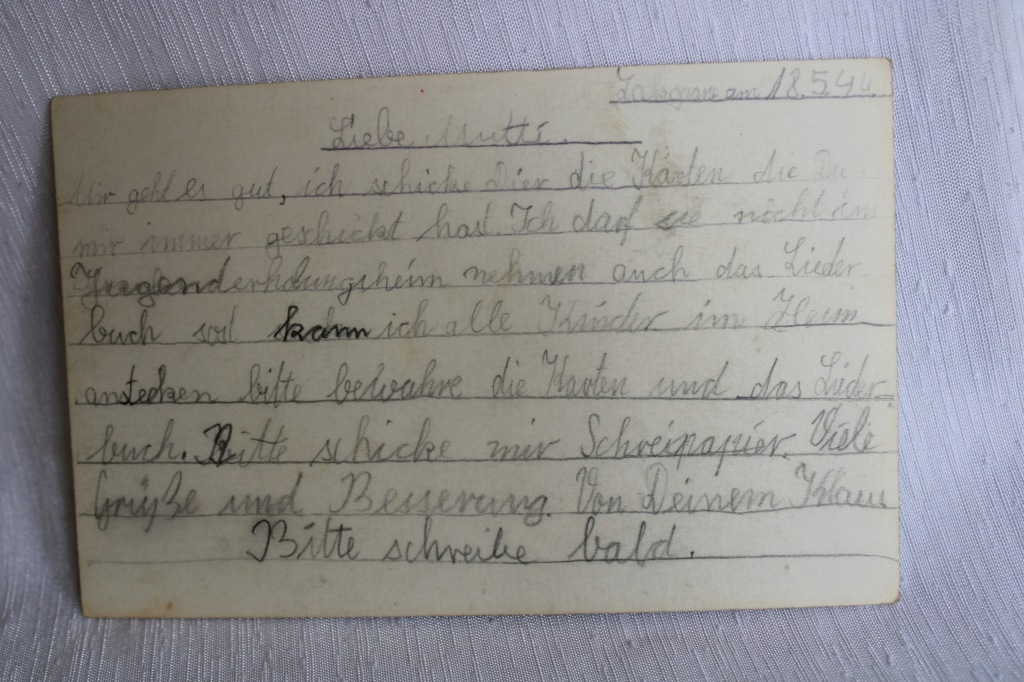 am 18.5.44.
Liebe Mutti.
Mir geht es gut, ich schicke Dier die Karten die Du
mir immer geschickt hast. Ich darf sie nicht im
Jugenderholungsheim nehmen auch das Lieder
buch sost kann ich alle Kinder im Heim
anstecken bitte bewahre die Karten und das Lieder=
buch. Bitte schicke mir Schreipapier. Viele
Grüße und Besserung. Von Deinem Klaus
Bitte schreibe bald.